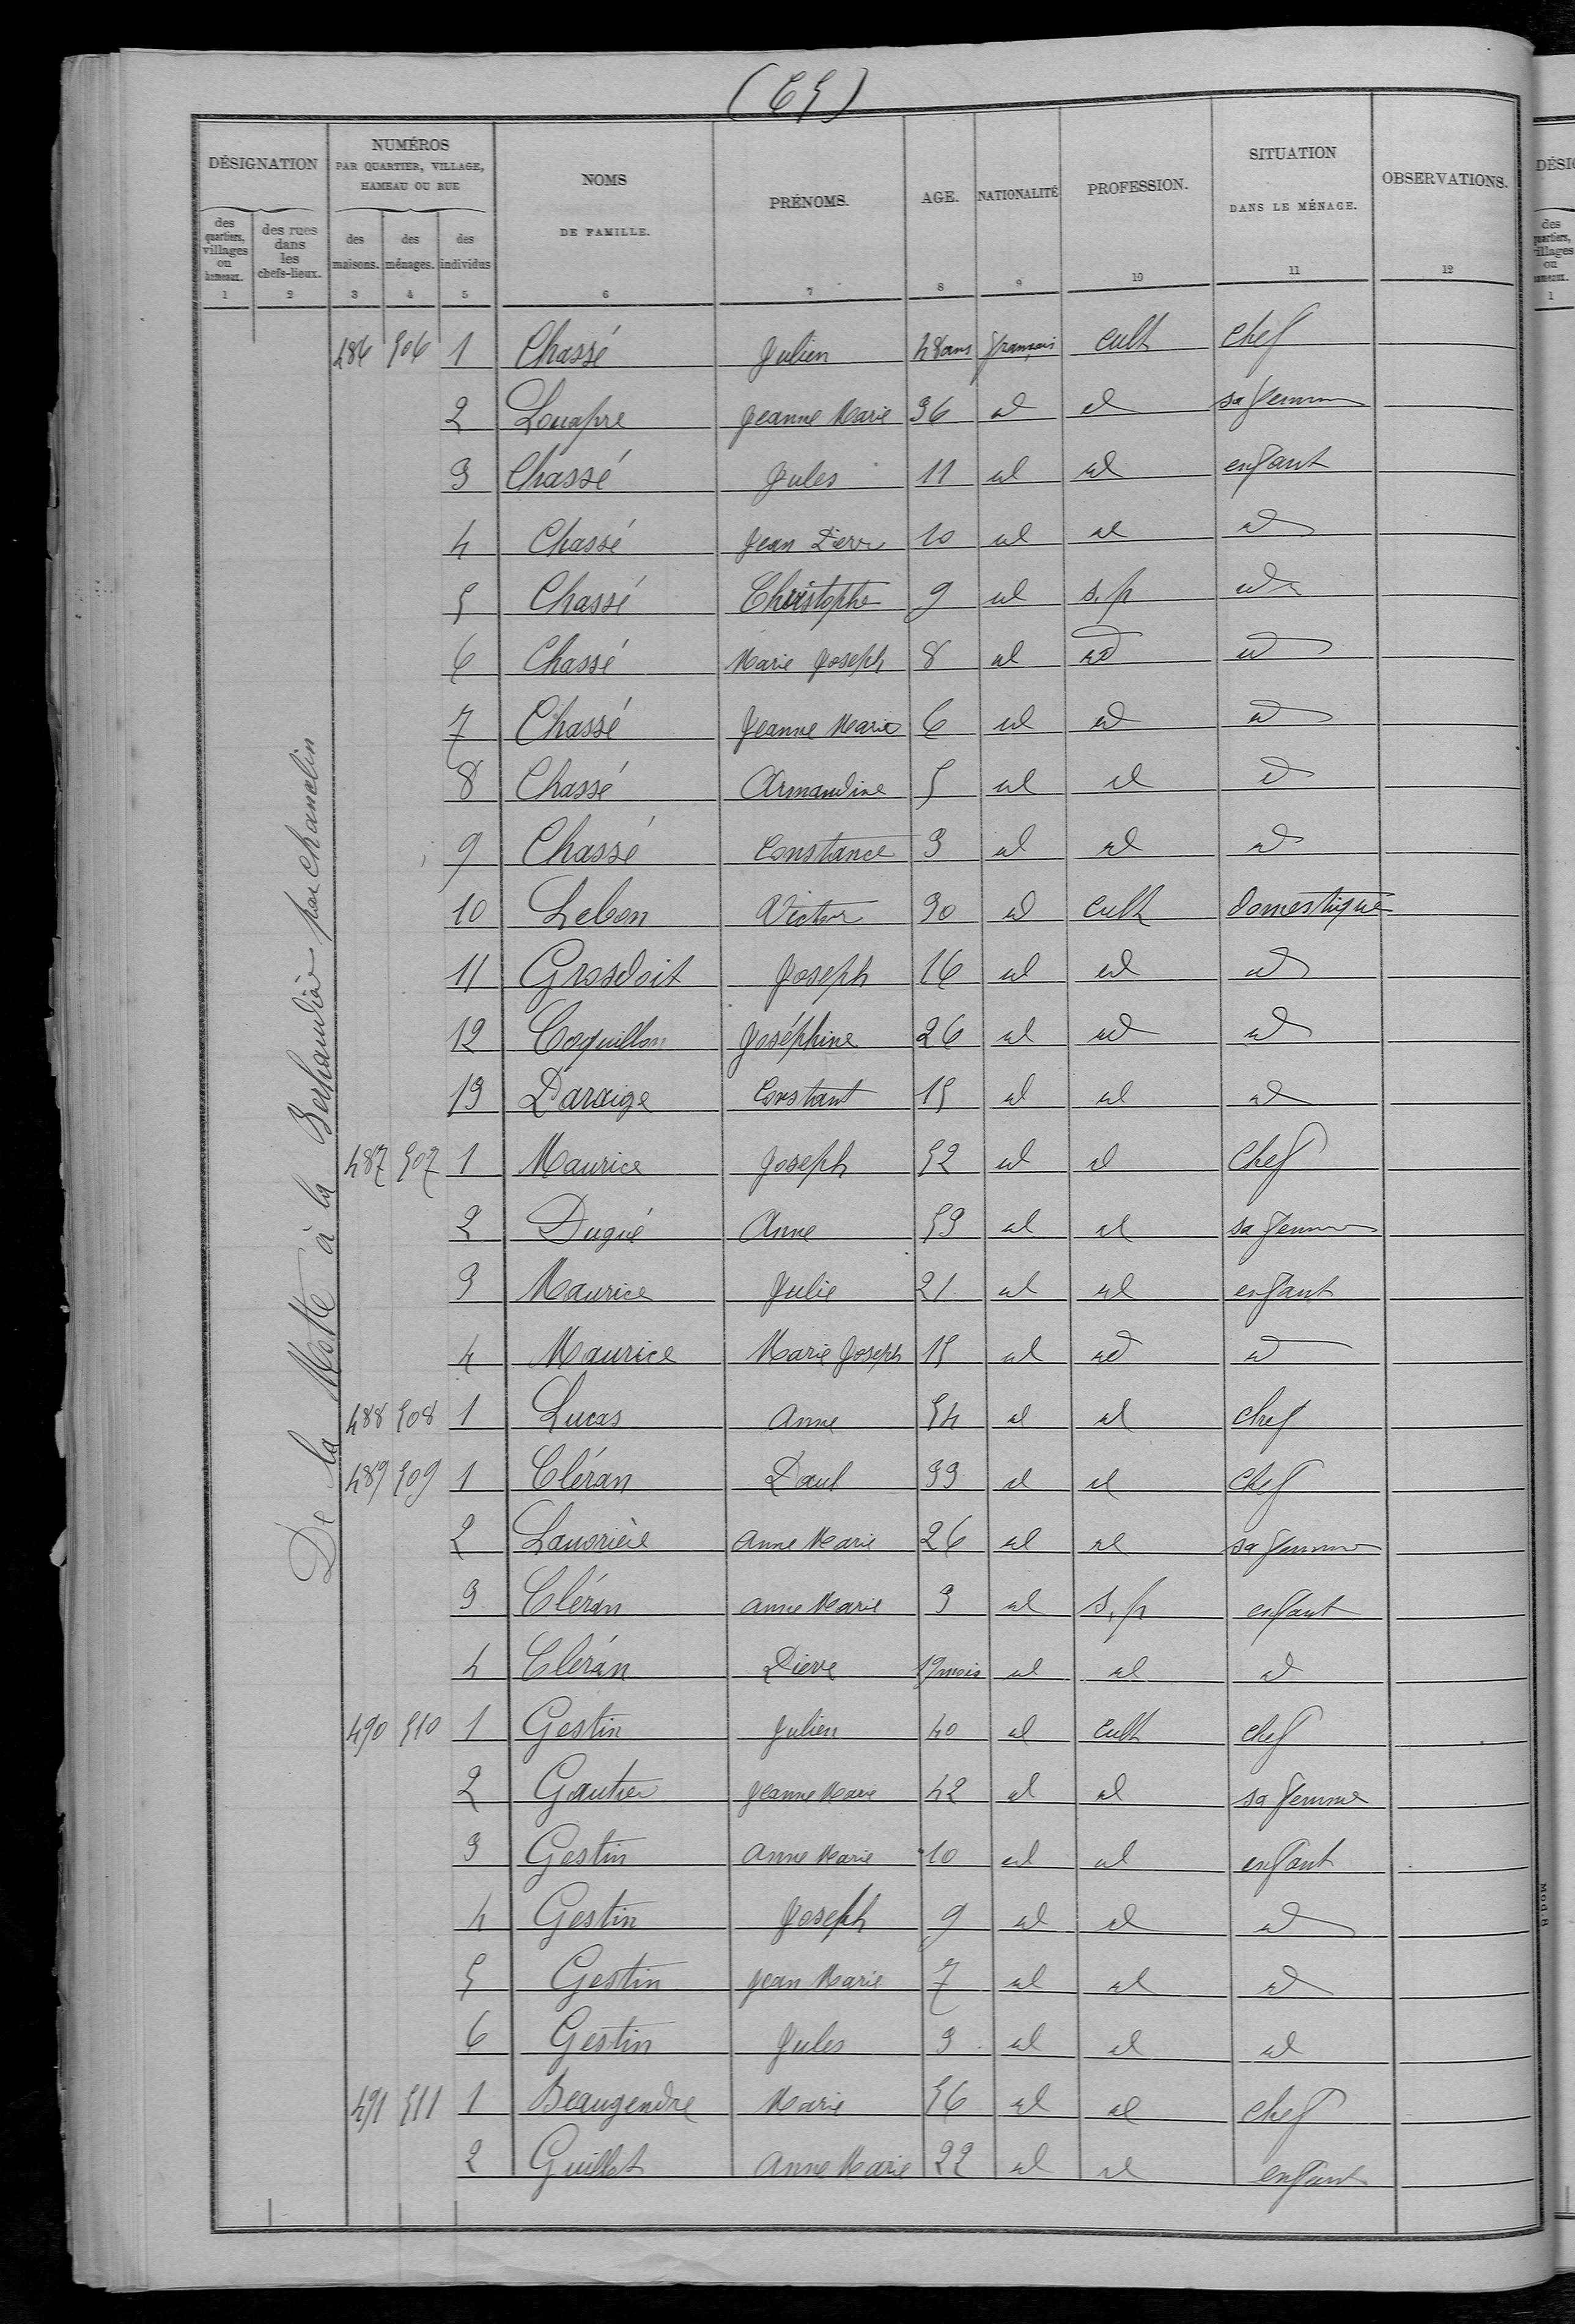 (65)
DÉSIGNATION
NUMÉROS
PAR QUARTIER, VILLAGE,
HAMEAU OU RUE
NOMS
DE FAMILLE.
PRÉNOMS.
AGE.
NATIONALITÉ
PROFESSION.
SITUATION
DANS LE MÉNAGE.
OBSERVATIONS.
des quartiers, villages ou hameaux.
des rues dans les chefs-lieux.
des maisons.
des ménages.
des individus
1 2 3 4 5 6 7 8 9 10 11 12
De la Motte à la par chancelin
486 506 1 Chassé Julien 48 ans français cult chef
2 Louapre Jeanne Marie 36 id id sa femme
3 Chassé Jules 11 id id enfant
4 Chassé Jean Pierre 10 id id id
5 Chassé Christophe 9 id s.p id
6 Chassé Marie Joseph 8 id id id
7 Chassé Jeanne Marie 6 id id id
8 Chassé Armandine 5 id id id
9 Chassé Constance 3 id id id
10 Lebon Victor 30 id cult domestique
11 Grosdoit Joseph 16 id id id
12 Coquillon Joséphine 26 id id id
13 Daraize Constant 15 id id id
487 507 1 Maurice Joseph 52 id id Chef
2 Dugué Anne 53 id id sa femme
3 Maurice Julie 21 id id enfant
4 Maurice Marie Joseph 15 id id id
488 508 1 Lucas Anne 54 id id chef
489 509 1 Cléran Paul 33 id id chef
2 Anne Marie 26 id id sa femme
3 Cléran Anne Marie 3 id s.p enfant
4 Cléran Pierre 19 mois id id id
490 510 1 Gestin Julien 40 id cult chef
2 Gautier Jeanne Marie 42 id id sa femme
3 Gestin Anne Marie 10 id id enfant
4 Gestin Joseph 9 id id id
5 Gestin Jean Marie 7 id id id
6 Gestin Jules 3 id id id
491 511 1 Beaugendre Marie 56 id id chef
2 Guillot Anne Marie 22 id id enfant
Mod. B